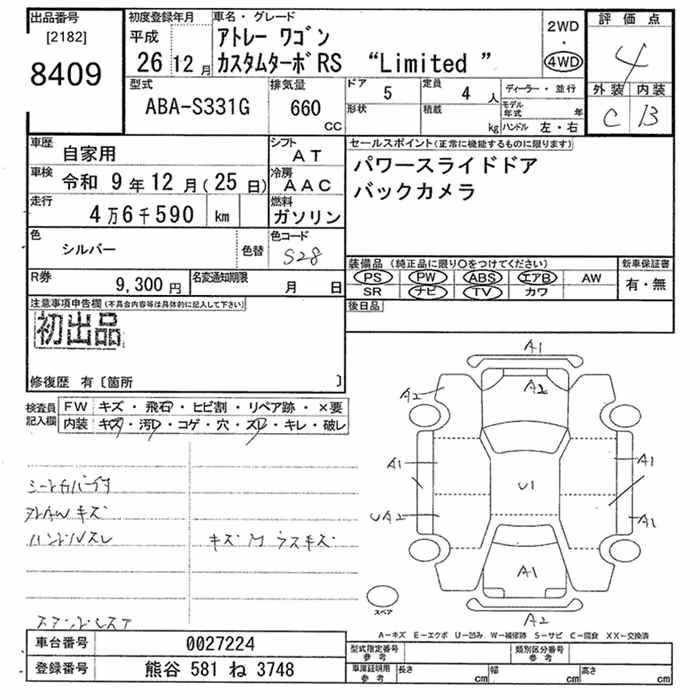 出品番号
[2182]
8409
初度登録年月
平成
26 12 月
車名・グレード
アトレー ワゴン
カスタムターボRS “Limited ”
2WD
・
4WD
評価点
4
外装 内装
C B
型式
ABA-S331G
排気量
660
CC
ドア
5
定員
4 人
形状
積載
kg
ディーラー・並行
モデル年式 年
ハンドル 左・右
車歴
自家用
シフト
AT
車検
令和 9 年 12 月 (25 日)
冷房
AAC
走行
4 万 6 千 590 km
燃料
ガソリン
色
シルバー
色替
色コード
S28
R券
9,300 円
名変通知期限
月 日
セールスポイント(正常に機能するものに限ります)
パワースライドドア
バックカメラ
装備品 (純正品に限り○をつけてください)
PS PW ABS エアB AW
SR ナビ TV カワ
新車保証書
有・無
後日品
注意事項申告欄(不具合内容等は具体的に記入して下さい)
初出品
修復歴 有〔箇所 〕
検査員記入欄
FW キズ・飛石・ヒビ割・リペア跡・×要
内装 キズ・汚レ・コゲ・穴・スレ・キレ・破レ
ハンドルスレ
キズ M ウスキズ
A1
A2
A2
A1
A1
U1
UA2
A1
A1
A2
スペア
A-キズ E-エクボ U-凹み W-補修跡 S-サビ C-腐食 XX-交換済
車台番号
0027224
登録番号
熊谷 581 ね 3748
型式指定番号
参考
類別区分番号
参考
車庫証明用
参考
長さ cm
幅 cm
高さ cm